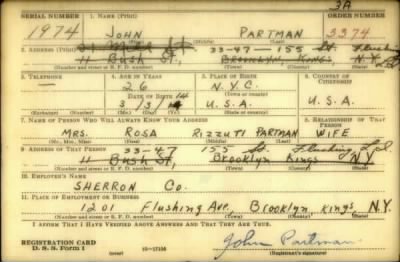 3A
SERIAL NUMBER 1. NAME (Print) ORDER NUMBER
1974 JOHN PARTMAN 3374
(First) (Middle) (Last)
2. ADDRESS (Print) 33-47-155 St. Flushing
11 Bush St, Brooklyn, Kings N.Y.
(Number and street or R. F. D. number) (Town) (County) (State)
3. TELEPHONE 4. AGE IN YEARS 5. PLACE OF BIRTH 6. COUNTRY OF CITIZENSHIP
— 26 N.Y.C.
DATE OF BIRTH (Town or county)
3/3/14 U.S.A. U.S.A.
(Exchange) (Number) (Mo.) (Day) (Yr.) (State or country)
7. NAME OF PERSON WHO WILL ALWAYS KNOW YOUR ADDRESS 8. RELATIONSHIP OF THAT PERSON
MRS. ROSA RIZZUTI PARTMAN WIFE
(Mr., Mrs., Miss) (First) (Middle) (Last)
9. ADDRESS OF THAT PERSON 33-47 155 St. Flushing
11 Bush St, Brooklyn Kings N.Y.
(Number and street or R. F. D. number) (Town) (County) (State)
10. EMPLOYER'S NAME
SHERRON Co.
11. PLACE OF EMPLOYMENT OR BUSINESS
1201 Flushing Ave. Brooklyn Kings N.Y.
(Number and street or R. F. D. number) (Town) (County) (State)
I AFFIRM THAT I HAVE VERIFIED ABOVE ANSWERS AND THAT THEY ARE TRUE.
REGISTRATION CARD
D. S. S. Form 1 16—17105 John Partman
(Registrant's signature)